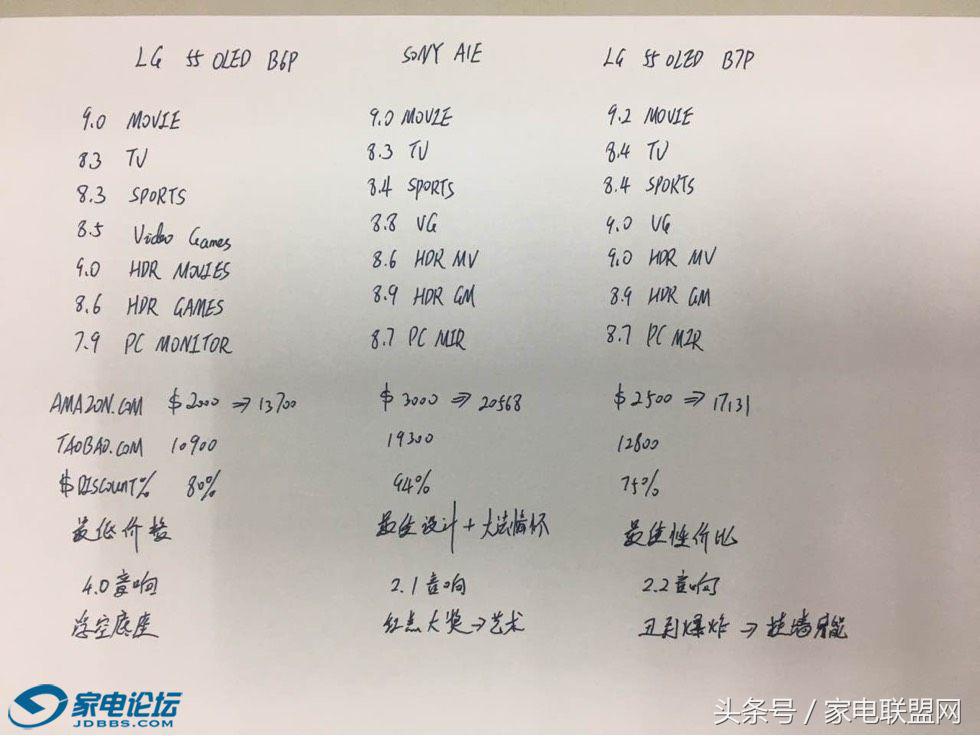 LG 55 OLED B6P SONY A1E LG 55 OLED B7P
9.0 MOVIE 9.0 MOVIE 9.2 MOVIE
8.3 TV 8.3 TV 8.4 TV
8.3 SPORTS 8.4 SPORTS 8.4 SPORTS
8.5 Video Games 8.8 VG 9.0 VG
9.0 HDR MOVIES 8.6 HDR MV 9.0 HDR MV
8.6 HDR GAMES 8.9 HDR GM 8.9 HDR GM
7.9 PC MONITOR 8.7 PC MIR 8.7 PC MIR
AMAZON.COM $2000 ⇒ 13700 $3000 ⇒ 20568 $2500 ⇒ 17131
TAOBAO.COM 10900 19300 12800
$ DISCOUNT% 80% 94% 75%
最低价格 最佳设计 + 大法情怀 最佳性价比
4.0 音响 2.1 音响 2.2 音响
浮空底座 红点大奖 → 艺术 丑到爆炸 ⇒ 挂墙
家电论坛
JDBBS.COM
头条号 / 家电联盟网